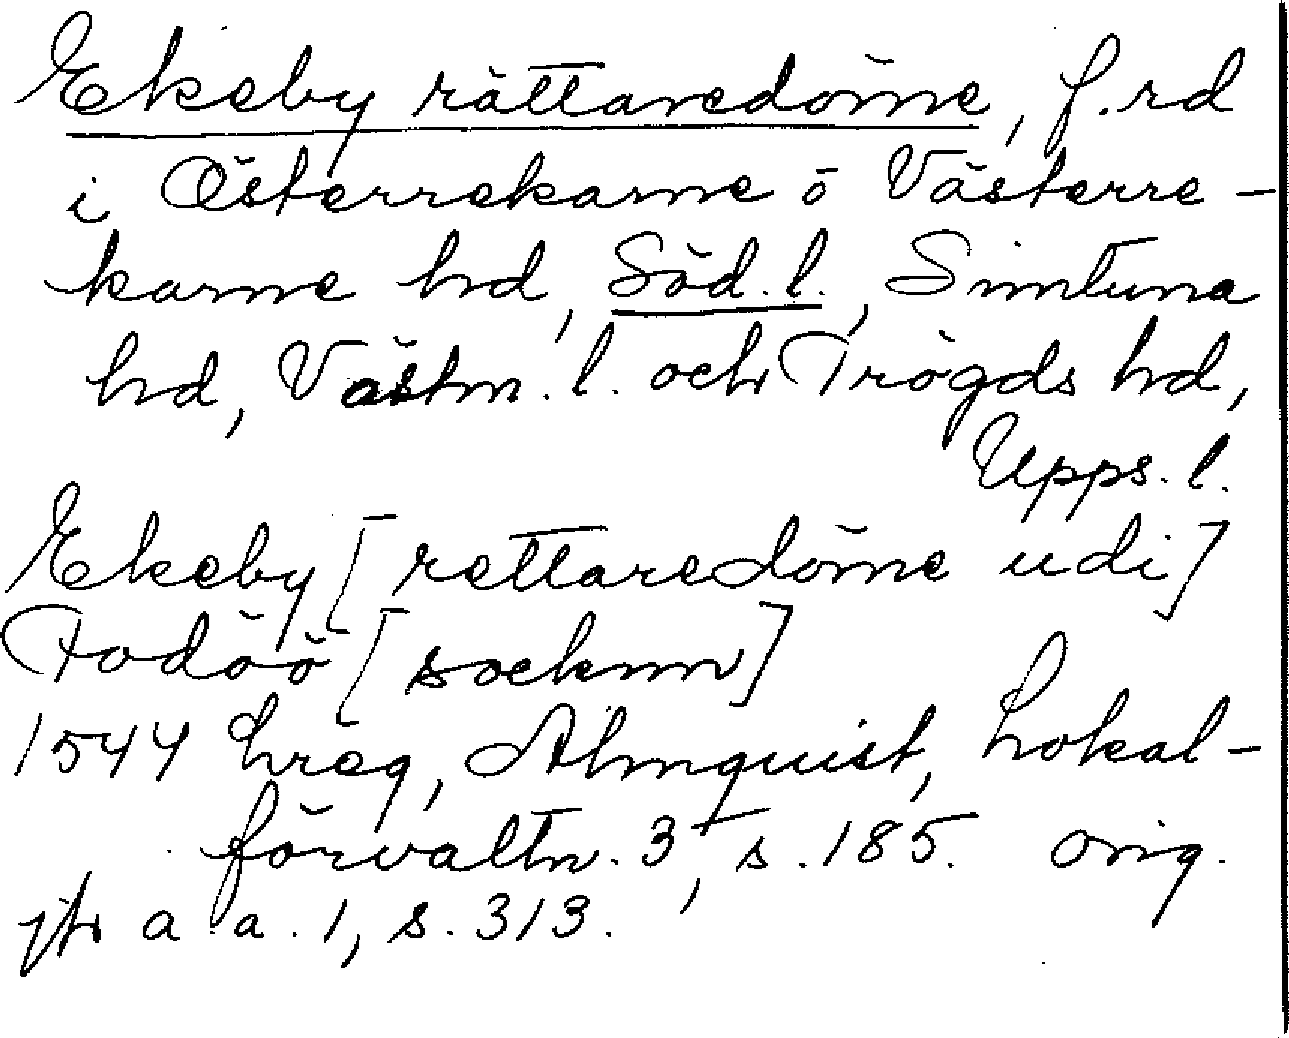 Ekeby rättaredöme, f.rd
i Österrekarne o Västerre-
karne hd, Söd.l., Simtuna
hd, Västm.l. och Trögds hd,
Upps.l.
Ekeby [rettaredöme udi]
Fodöö [socknn]
1544 hreg, Almquist, Lokal-
förvaltn. 3, s.185. orig.
jfr a.a.1, s.313.